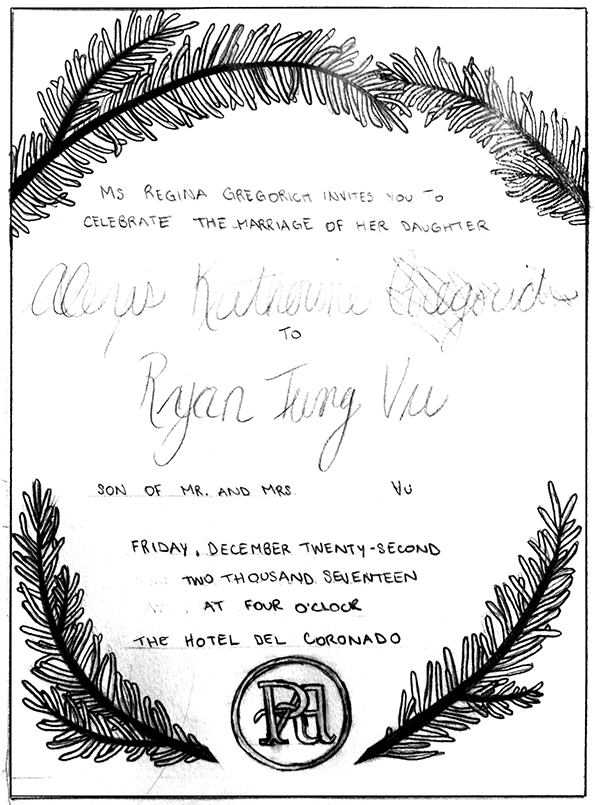 MS REGINA GREGORICH INVITES YOU TO
CELEBRATE THE MARRIAGE OF HER DAUGHTER
Alexis Katherine Gregorich
TO
Ryan Tung Vu
SON OF MR. AND MRS. Vu
FRIDAY, DECEMBER TWENTY-SECOND
TWO THOUSAND SEVENTEEN
AT FOUR O'CLOCK
THE HOTEL DEL CORONADO